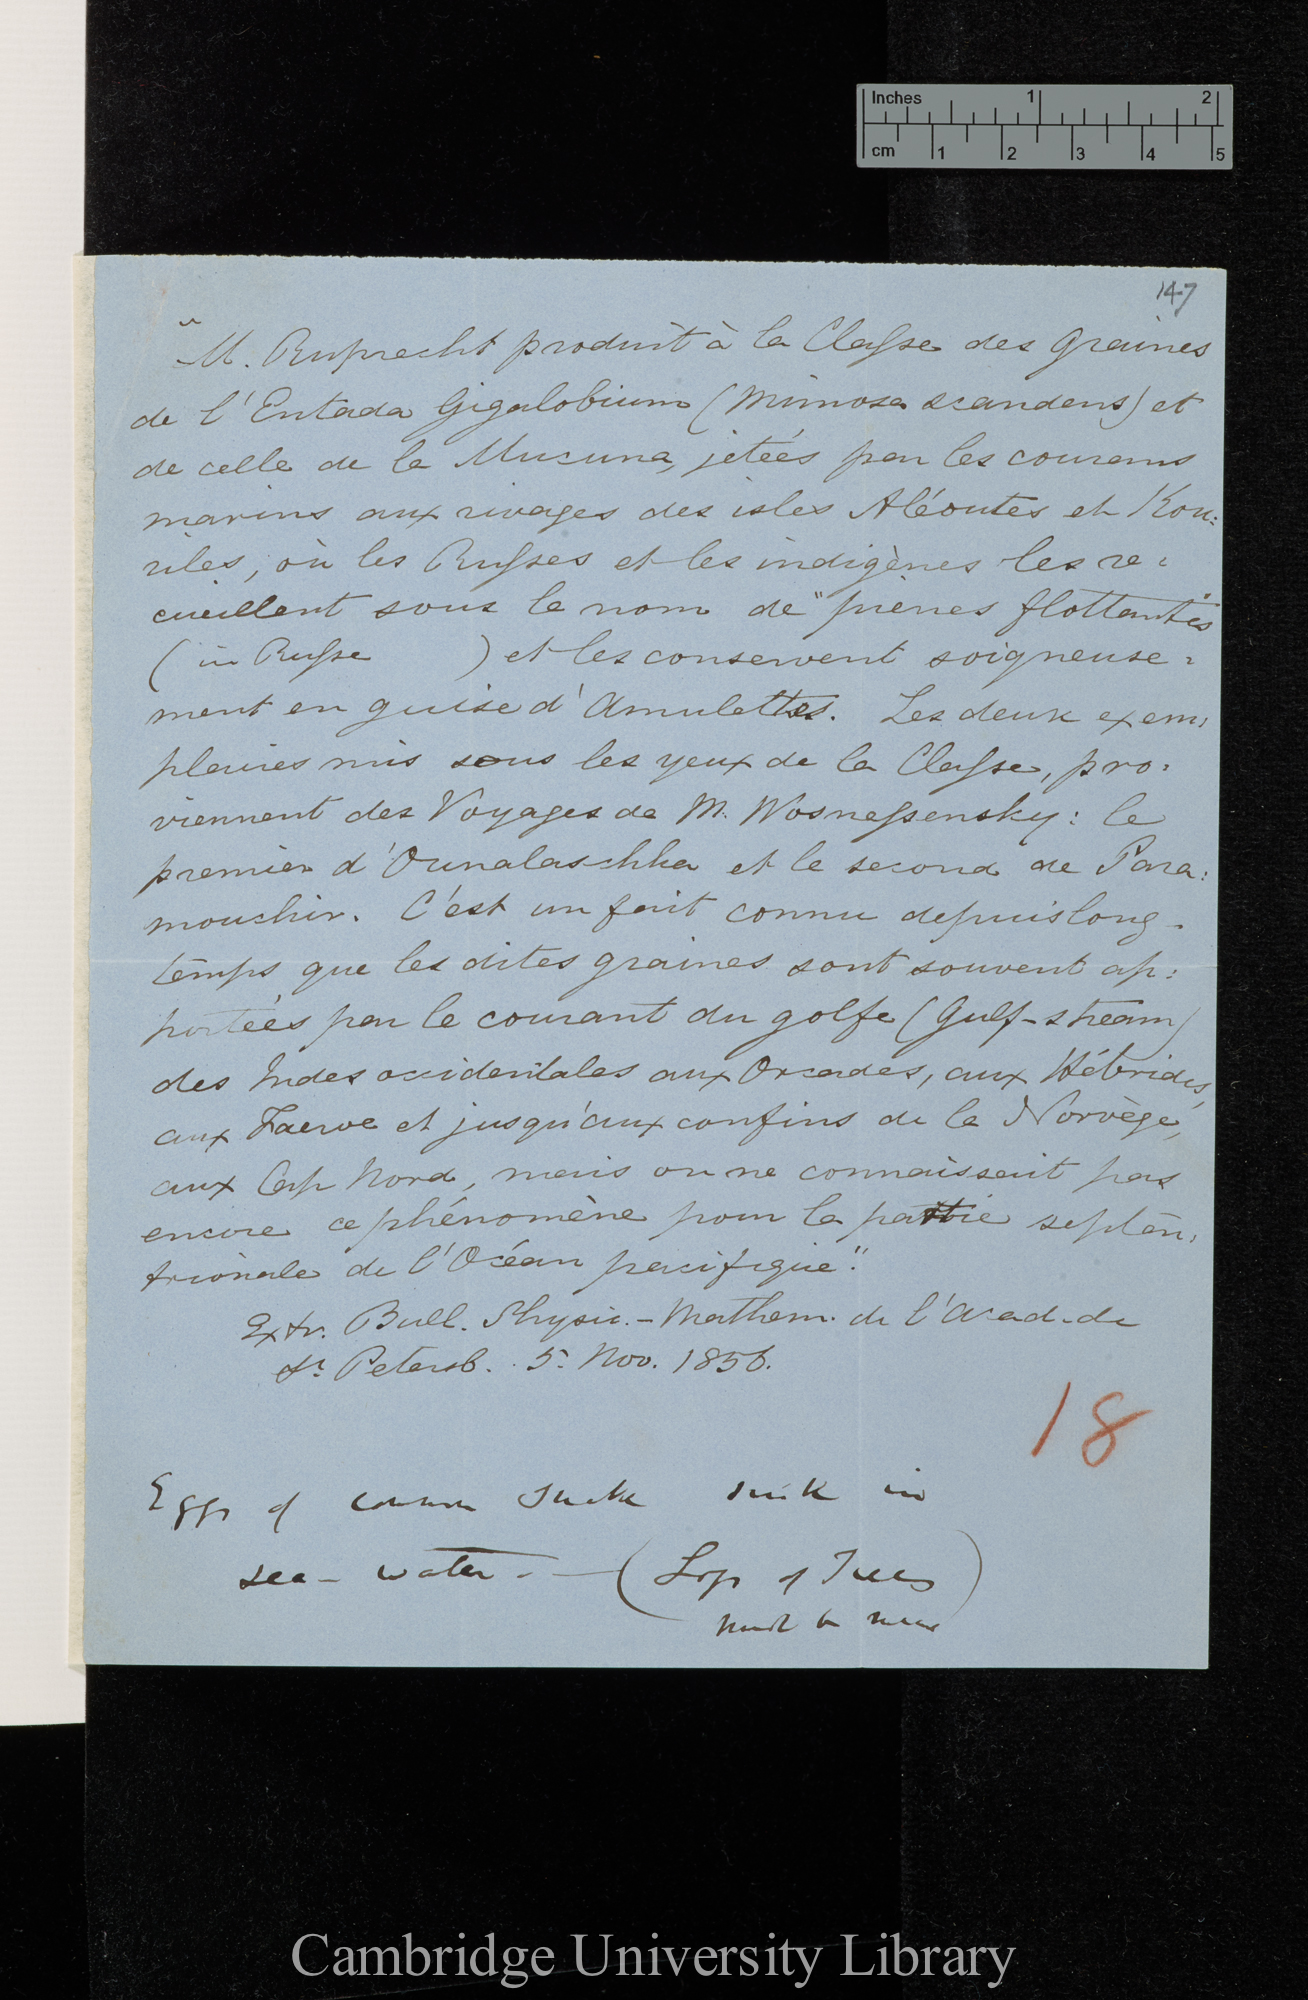 Inches 1 2
cm 1 2 3 4 5
147
"M. Ruprecht produit à la Classe des graines
de l'Entada Gigalobium (Mimosa scandens) et
de celle de la Mucuna, jetées par les courans
marins aux rivages des isles Aléoutes et Kou:
riles, où les Russes et les indigènes les re:
cueillent sous le nom de "pierres flottantes"
(in Russe ) et les conservent soigneuse:
ment en guise d'Amulettes. Les deux exem:
plaires mis sous les yeux de la Classe, pro:
viennent des Voyages de M. Wosnessensky: le
premier d'Ounalaschka et le second de Para:
mouchir. C'est un fait connu depuis long-
temps que les dites graines sont souvent ap:
portées par le courant du golfe (Gulf-stream)
des Indes occidentales aux Orcades, aux Hébrides,
aux Faeroe et jusqu'aux confins de la Norvège,
aux Cap Nord, mais on ne connaissait pas
encore ce phénomène pour la partie septen:
trionale de l'Océan pacifique".
Extr. Bull. Physic.-Mathem. de l'Acad. de
St. Petersb. 5. Nov. 1856.
18
Eggs of common Snake sink in
sea-water. — (Lop of Trees
must be
Cambridge University Library